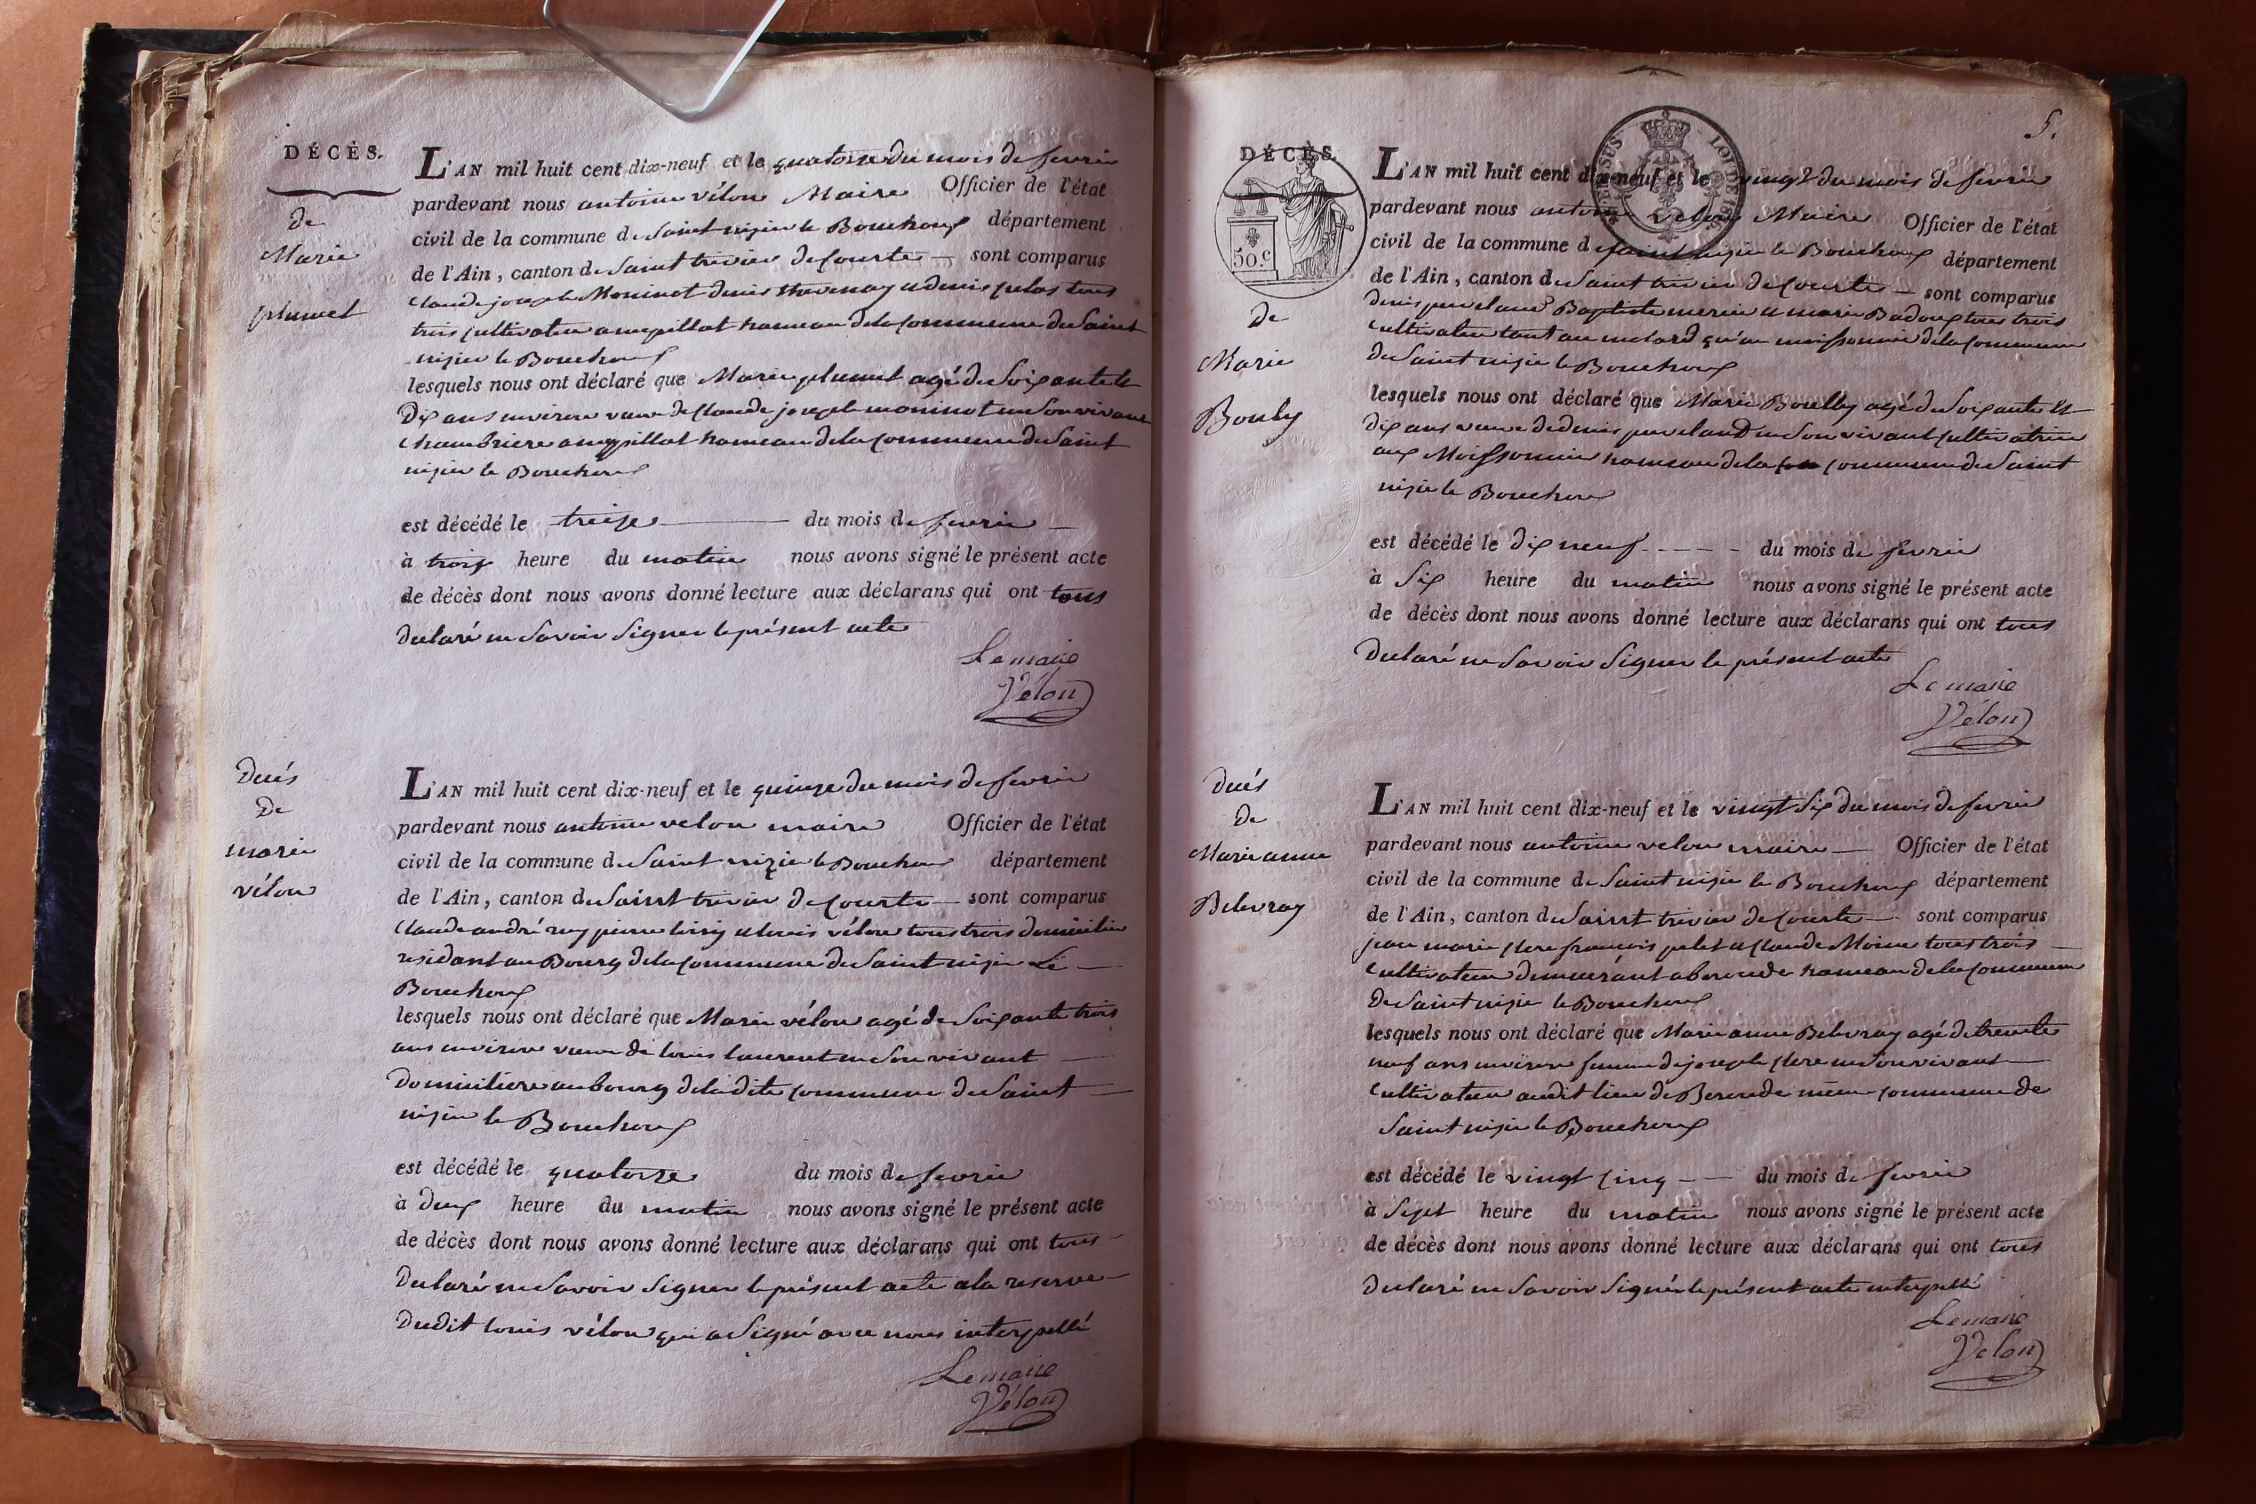 DÉCÈS.
de
Marie
plumet
L'AN mil huit cent dix-neuf et le quatorze du mois de fevrie
pardevant nous antoine vélon Maire Officier de l'état
civil de la commune de Saint nizie le Bouchoux département
de l'Ain, canton de Saint trivier de Courte sont comparus
Claude joseph Moninot denis thevenay et denis pelas tous
trois cultivateu a mepillat hameau de la commune de Saint
nizie le Bouchoux
lesquels nous ont déclaré que Marie plumet agé de Soixante et
Dix ans environ veuve de Claude joseph moninot en Son vivant
Chambriere a mepillat hameau de la commune de Saint
nizie le Bouchoux
est décédé le treize du mois de fevrie
à trois heure du matin nous avons signé le présent acte
de décès dont nous avons donné lecture aux déclarans qui ont tous
declaré ne Savoir Signer le présent acte
Le maire
Vélon
Decés
De
marie
vélon
L'AN mil huit cent dix-neuf et le quinze du mois de fevrie
pardevant nous antoine velon maire Officier de l'état
civil de la commune de Saint nizie le Bouchoux département
de l'Ain, canton de Saint trivier de Courte sont comparus
Claude andré rey pierre loisy et louis vélon tous trois domicilie
residant au Bourg de la commune de Saint nizie Le
Bouchoux
lesquels nous ont déclaré que Marie vélon agé de Soixante trois
ans environ veuve de louis laurent en Son vivant
Domiciliere au bourg de la dite commune de Saint
nizie le Bouchoux
est décédé le quatorze du mois de fevrie
à deux heure du matin nous avons signé le présent acte
de décès dont nous avons donné lecture aux déclarans qui ont tous
declaré ne Savoir Signer le présent acte a la reserve
Dudit louis vélon qui a Signé avec nous interpellé
Le maire
Vélon
5.
DÉCÈS.
50.c
LOI DE 1816
de
Marie
Bouly
L'AN mil huit cent dix-neuf et le vingt du mois de fevrie
pardevant nous antoine velon Maire Officier de l'état
civil de la commune de Saint nizie le Bouchoux département
de l'Ain, canton de Saint trivier de Courte sont comparus
denis Baptiste et marie Badoux tous trois
Cultivateu tant au molard qu'au moissonnie de la commune
de Saint nizie le Bouchoux
lesquels nous ont déclaré que Marie Boulley agé de Soixante et
dix ans veuve de denis en Son vivant Cultivatrice
aux Moissonnie hameau de la commune de Saint
nizie le Bouchoux
est décédé le dix neuf du mois de fevrie
à Six heure du matin nous avons signé le présent acte
de décès dont nous avons donné lecture aux déclarans qui ont tous
Declaré ne Savoir Signer le présent acte
Le maire
Vélon
decés
De
Marie anne
Belevray
L'AN mil huit cent dix-neuf et le vingt Six du mois de fevrie
pardevant nous antoine velon maire Officier de l'état
civil de la commune de Saint nizie le Bouchoux département
de l'Ain, canton de Saint trivier de Courte sont comparus
jean marie Clere françois pelet et Claude Moine tous trois
Cultivateu demeurant a beroude hameau de la commune
De Saint nizie le Bouchoux
lesquels nous ont déclaré que Marie anne Belevray agé de trente
neuf ans environ femme de joseph Clere en Son vivant
Cultivateu audit lieu de Beroude même commune de
Saint nizie le Bouchoux
est décédé le vingt Cinq du mois de fevrie
à Sept heure du matin nous avons signé le présent acte
de décès dont nous avons donné lecture aux déclarans qui ont tous
Declaré ne Savoir Signé le présent acte interpellé
Le maire
Velon